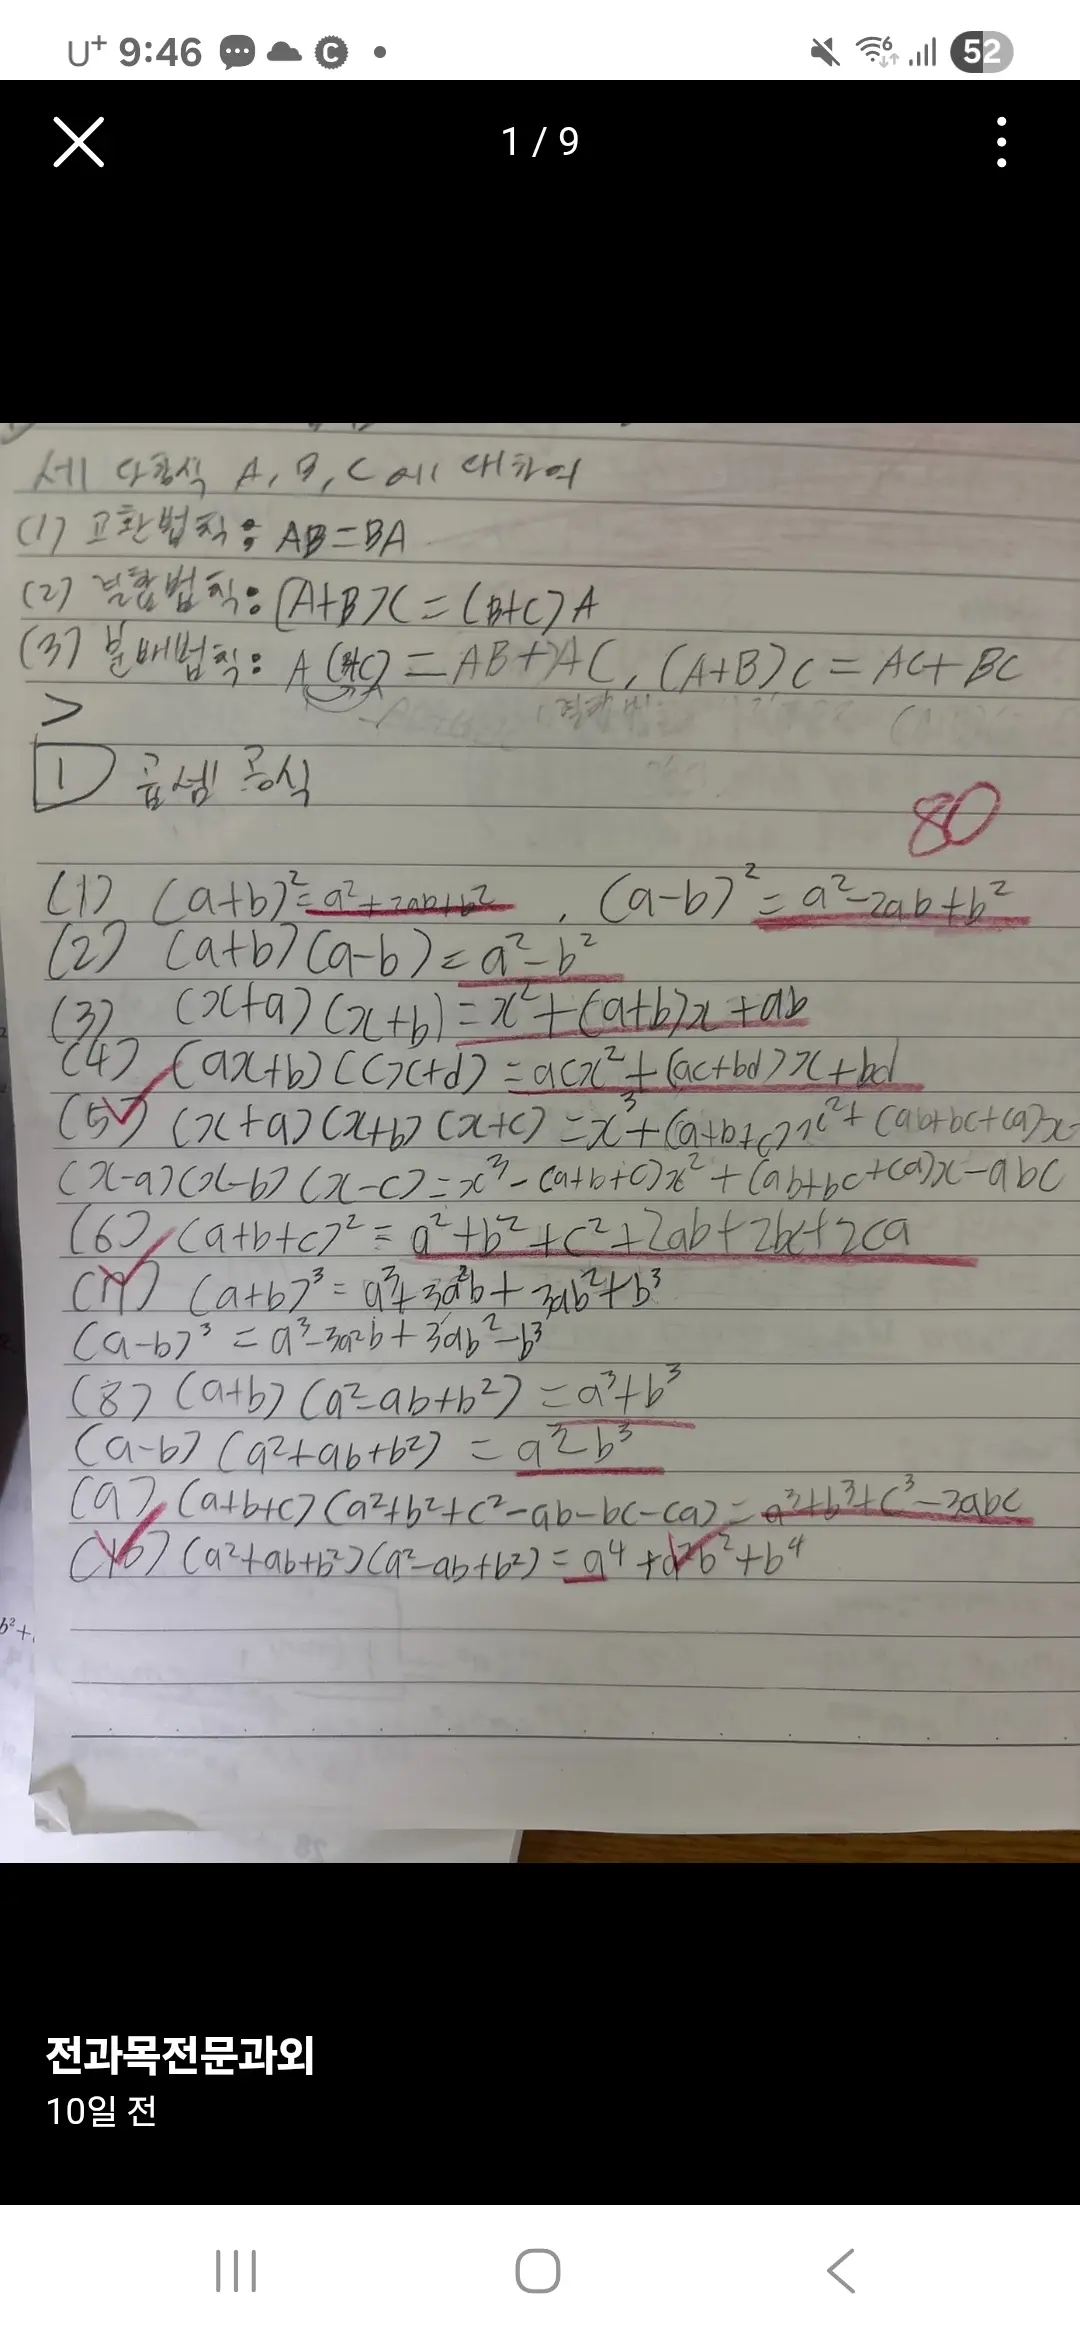 U+ 9:46 52
1 / 9
세 다항식 A, B, C에 대하여
(1) 교환법칙: AB=BA
(2) 결합법칙: (A+B)C = (B+C)A
(3) 분배법칙: A(B+C) = AB+AC, (A+B)C = AC+BC
>
1 곱셈 공식
80
(1) (a+b)²=a²+2ab+b², (a-b)²=a²-2ab+b²
(2) (a+b)(a-b)=a²-b²
(3) (x+a)(x+b)=x²+(a+b)x+ab
(4) (ax+b)(cx+d)=acx²+(ac+bd)x+bd
(5) (x+a)(x+b)(x+c)=x³+(a+b+c)x²+(ab+bc+ca)x
(x-a)(x-b)(x-c)=x³-(a+b+c)x²+(ab+bc+ca)x-abc
(6) (a+b+c)²=a²+b²+c²+2ab+2bc+2ca
(7) (a+b)³=a³+3a²b+3ab²+b³
(a-b)³=a³-3a²b+3ab²-b³
(8) (a+b)(a²-ab+b²)=a³+b³
(a-b)(a²+ab+b²)=a³-b³
(9) (a+b+c)(a²+b²+c²-ab-bc-ca)=a³+b³+c³-3abc
(10) (a²+ab+b²)(a²-ab+b²)=a⁴+a²b²+b⁴
b²+
전과목전문과외
10일 전